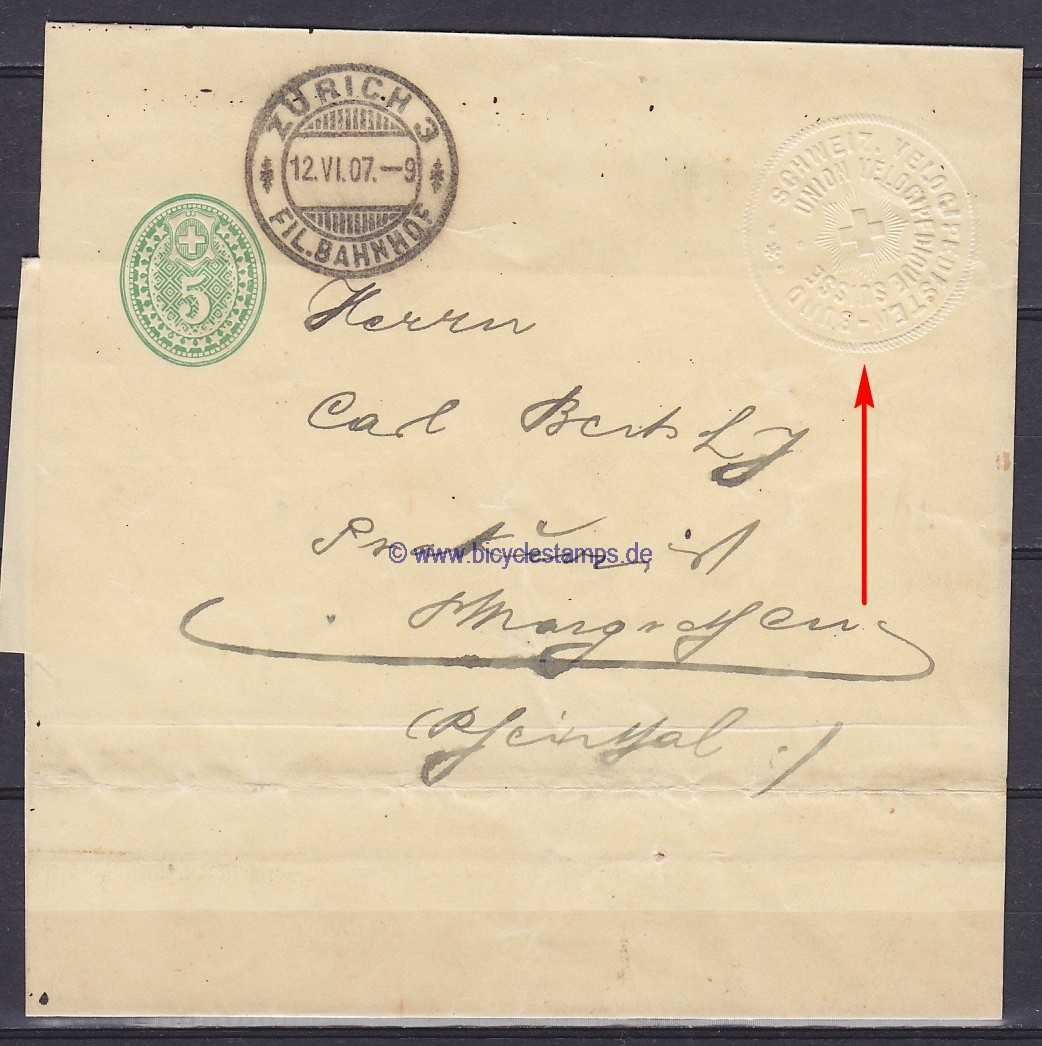 ZÜRICH 3
12.VI.07.–9
FIL. BAHNHOF
5
SCHWEIZ. VELOCIPEDISTEN-BUND
UNION VELOCIPEDIQUE SUISSE
Herrn
Carl
© www.bicyclestamps.de
(Rheinthal.)